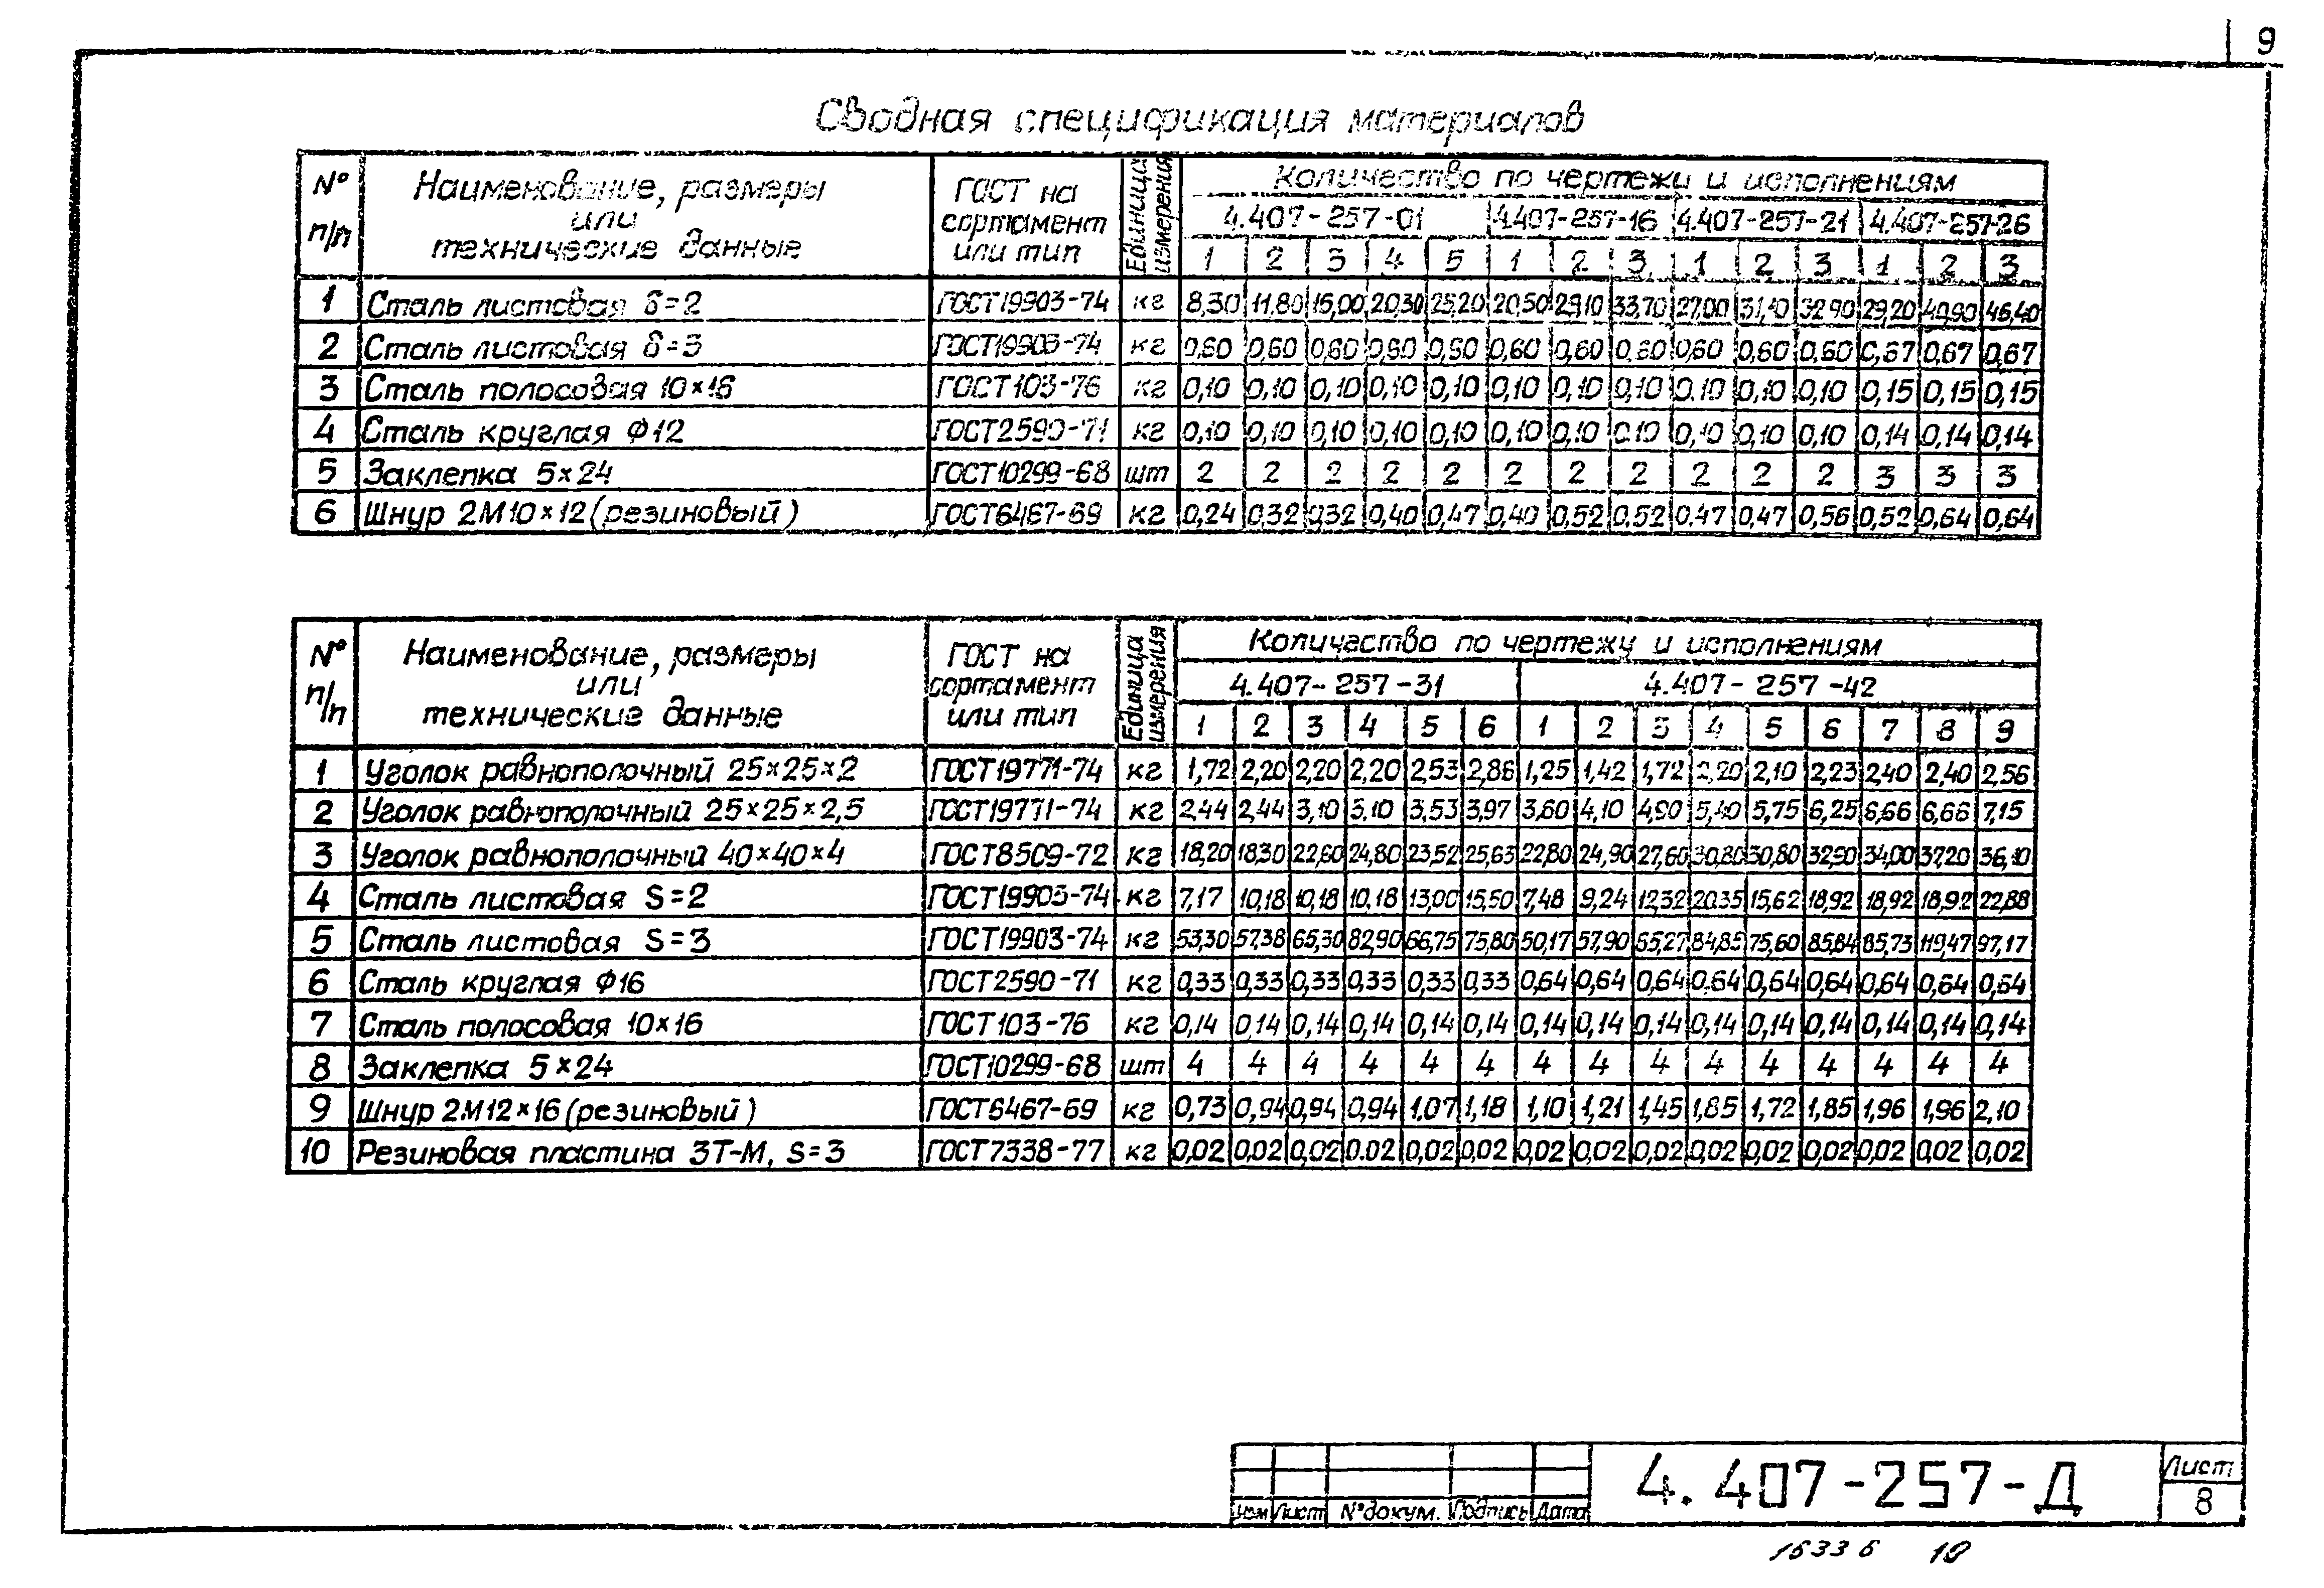 9
Сводная спецификация материалов
№ п/п | Наименование, размеры или технические данные | ГОСТ на сортамент или тип | Единица измерения | Количество по чертежи и исполнениям
4.407-257-01 | 4.407-257-16 | 4.407-257-21 | 4.407-257-26
1 2 3 4 5 1 2 3 1 2 3 1 2 3
1 Сталь листовая δ=2 ГОСТ19903-74 кг 8,30 11,80 15,00 20,30 25,20 20,50 29,10 33,70 27,00 31,40 32,90 29,20 40,90 46,40
2 Сталь листовая δ=3 ГОСТ19903-74 кг 0,60 0,60 0,60 0,60 0,60 0,60 0,60 0,60 0,60 0,60 0,60 0,67 0,67 0,67
3 Сталь полосовая 10×16 ГОСТ103-76 кг 0,10 0,10 0,10 0,10 0,10 0,10 0,10 0,10 0,10 0,10 0,10 0,15 0,15 0,15
4 Сталь круглая Ф12 ГОСТ2590-71 кг 0,10 0,10 0,10 0,10 0,10 0,10 0,10 0,10 0,10 0,10 0,10 0,14 0,14 0,14
5 Заклепка 5×24 ГОСТ10299-68 шт 2 2 2 2 2 2 2 2 2 2 2 3 3 3
6 Шнур 2М10×12 (резиновый) ГОСТ6467-69 кг 0,24 0,32 0,32 0,40 0,47 0,40 0,52 0,52 0,47 0,47 0,56 0,52 0,64 0,64
№ п/п | Наименование, размеры или технические данные | ГОСТ на сортамент или тип | Единица измерения | Количество по чертежу и исполнениям
4.407-257-31 | 4.407-257-42
1 2 3 4 5 6 1 2 3 4 5 6 7 8 9
1 Уголок равнополочный 25×25×2 ГОСТ19771-74 кг 1,72 2,20 2,20 2,20 2,53 2,86 1,25 1,42 1,72 2,20 2,10 2,23 2,40 2,40 2,56
2 Уголок равнополочный 25×25×2,5 ГОСТ19771-74 кг 2,44 2,44 3,10 3,10 3,53 3,97 3,60 4,10 4,90 5,40 5,75 6,25 6,66 6,66 7,15
3 Уголок равнополочный 40×40×4 ГОСТ8509-72 кг 18,20 18,30 22,60 24,80 23,52 25,63 22,80 24,90 27,60 30,80 30,80 32,90 34,00 37,20 36,10
4 Сталь листовая S=2 ГОСТ19903-74 кг 7,17 10,18 10,18 10,18 13,00 15,50 7,48 9,24 12,32 20,35 15,62 18,92 18,92 18,92 22,88
5 Сталь листовая S=3 ГОСТ19903-74 кг 53,30 57,38 65,30 82,90 66,75 75,80 50,17 57,90 65,27 84,85 75,60 85,84 85,73 119,47 97,17
6 Сталь круглая Ф16 ГОСТ2590-71 кг 0,33 0,33 0,33 0,33 0,33 0,33 0,64 0,64 0,64 0,64 0,64 0,64 0,64 0,64 0,64
7 Сталь полосовая 10×16 ГОСТ103-76 кг 0,14 0,14 0,14 0,14 0,14 0,14 0,14 0,14 0,14 0,14 0,14 0,14 0,14 0,14 0,14
8 Заклепка 5×24 ГОСТ10299-68 шт 4 4 4 4 4 4 4 4 4 4 4 4 4 4 4
9 Шнур 2М12×16 (резиновый) ГОСТ6467-69 кг 0,73 0,94 0,94 0,94 1,07 1,18 1,10 1,21 1,45 1,85 1,72 1,85 1,96 1,96 2,10
10 Резиновая пластина 3Т-М, S=3 ГОСТ7338-77 кг 0,02 0,02 0,02 0,02 0,02 0,02 0,02 0,02 0,02 0,02 0,02 0,02 0,02 0,02 0,02
Изм Лист №докум. Подпись Дата
4.407-257-Д
Лист
8
16336 10